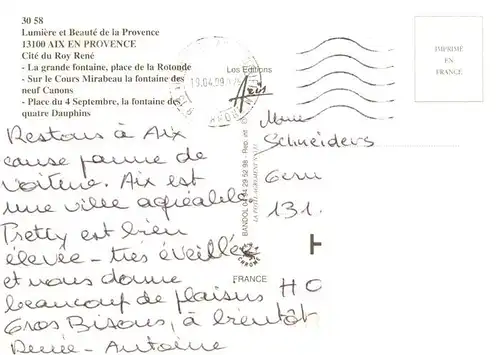 30 58
Lumière et Beauté de la Provence
13100 AIX EN PROVENCE
Cité du Roy René
- La grande fontaine, place de la Rotonde
- Sur le Cours Mirabeau la fontaine des
neuf Canons
- Place du 4 Septembre, la fontaine des
quatre Dauphins
Les Editions
Aris
19.04.99
IMPRIMÉ
EN
FRANCE
Restons à Aix
cause panne de
voiture. Aix est
une ville agréable.
Pretty est bien
élevée - très éveillée
et nous donne
beaucoup de plaisirs
Gros Bisous, à bientôt
Renée - Antoine
Mme
Schneiders
131.
H
HO
BANDOL 04 94 29 52 98 - Rep. et
FRANCE